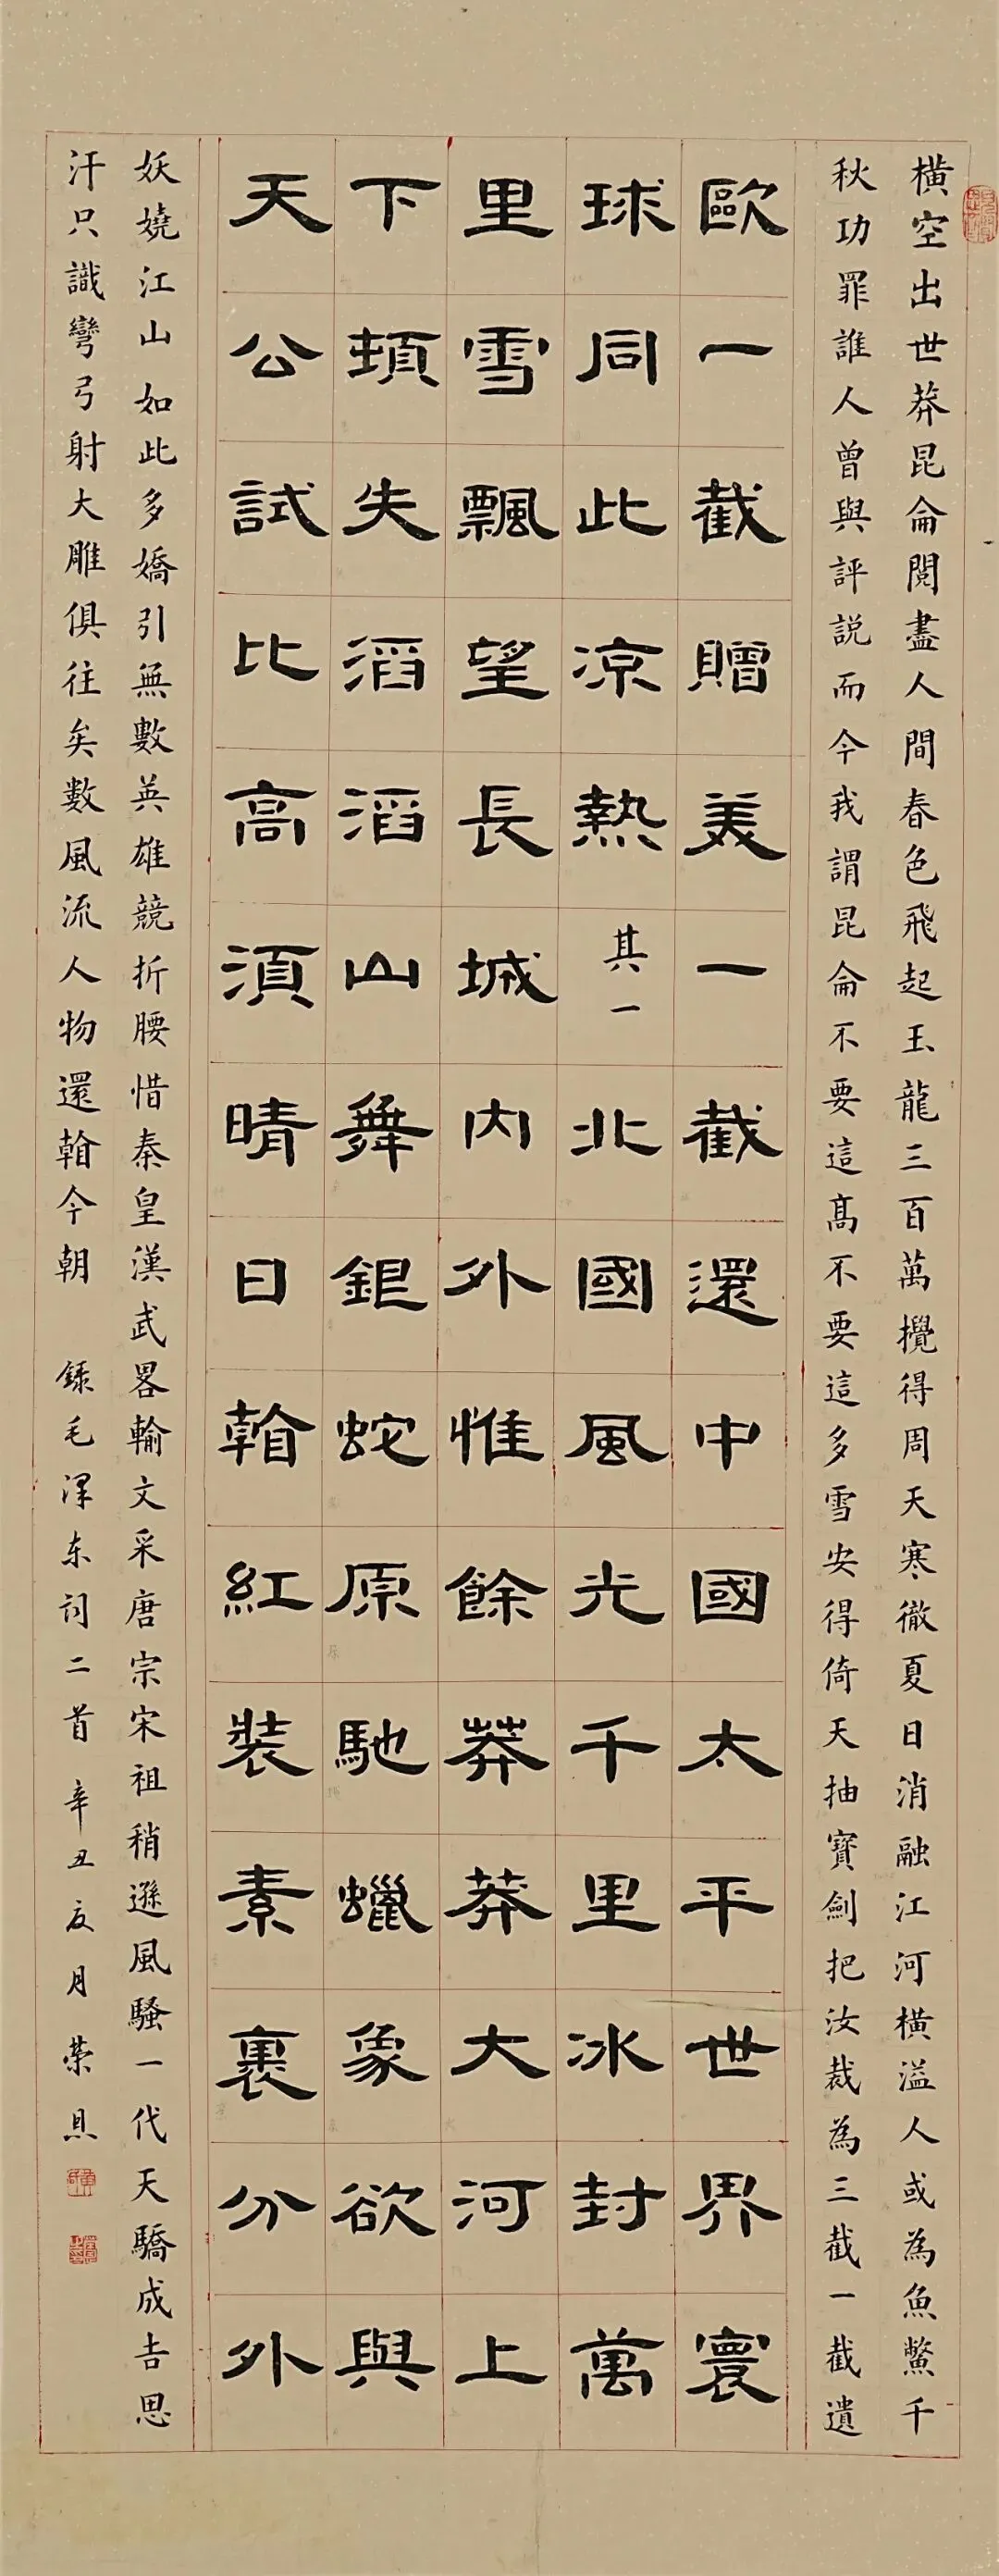 橫空出世莽昆侖閱盡人間春色飛起玉龍三百萬攪得周天寒徹夏日消融江河橫溢人或為魚鱉千
秋功罪誰人曾與評説而今我謂昆侖不要這高不要這多雪安得倚天抽寶劍把汝裁為三截一截遺
歐一截贈美一截還中國太平世界寰
球同此凉熱其一北國風光千里冰封萬
里雪飄望長城內外惟餘莽莽大河上
下頓失滔滔山舞銀蛇原馳蠟象欲與
天公試比高須晴日䎐紅裝素裹分外
妖嬈江山如此多嬌引無數英雄競折腰惜秦皇漢武畧輸文采唐宗宋祖稍遜風騷一代天驕成吉思
汗只識彎弓射大雕俱往矣數風流人物還䎐今朝 錄毛澤东词二首 辛丑夏月 榮